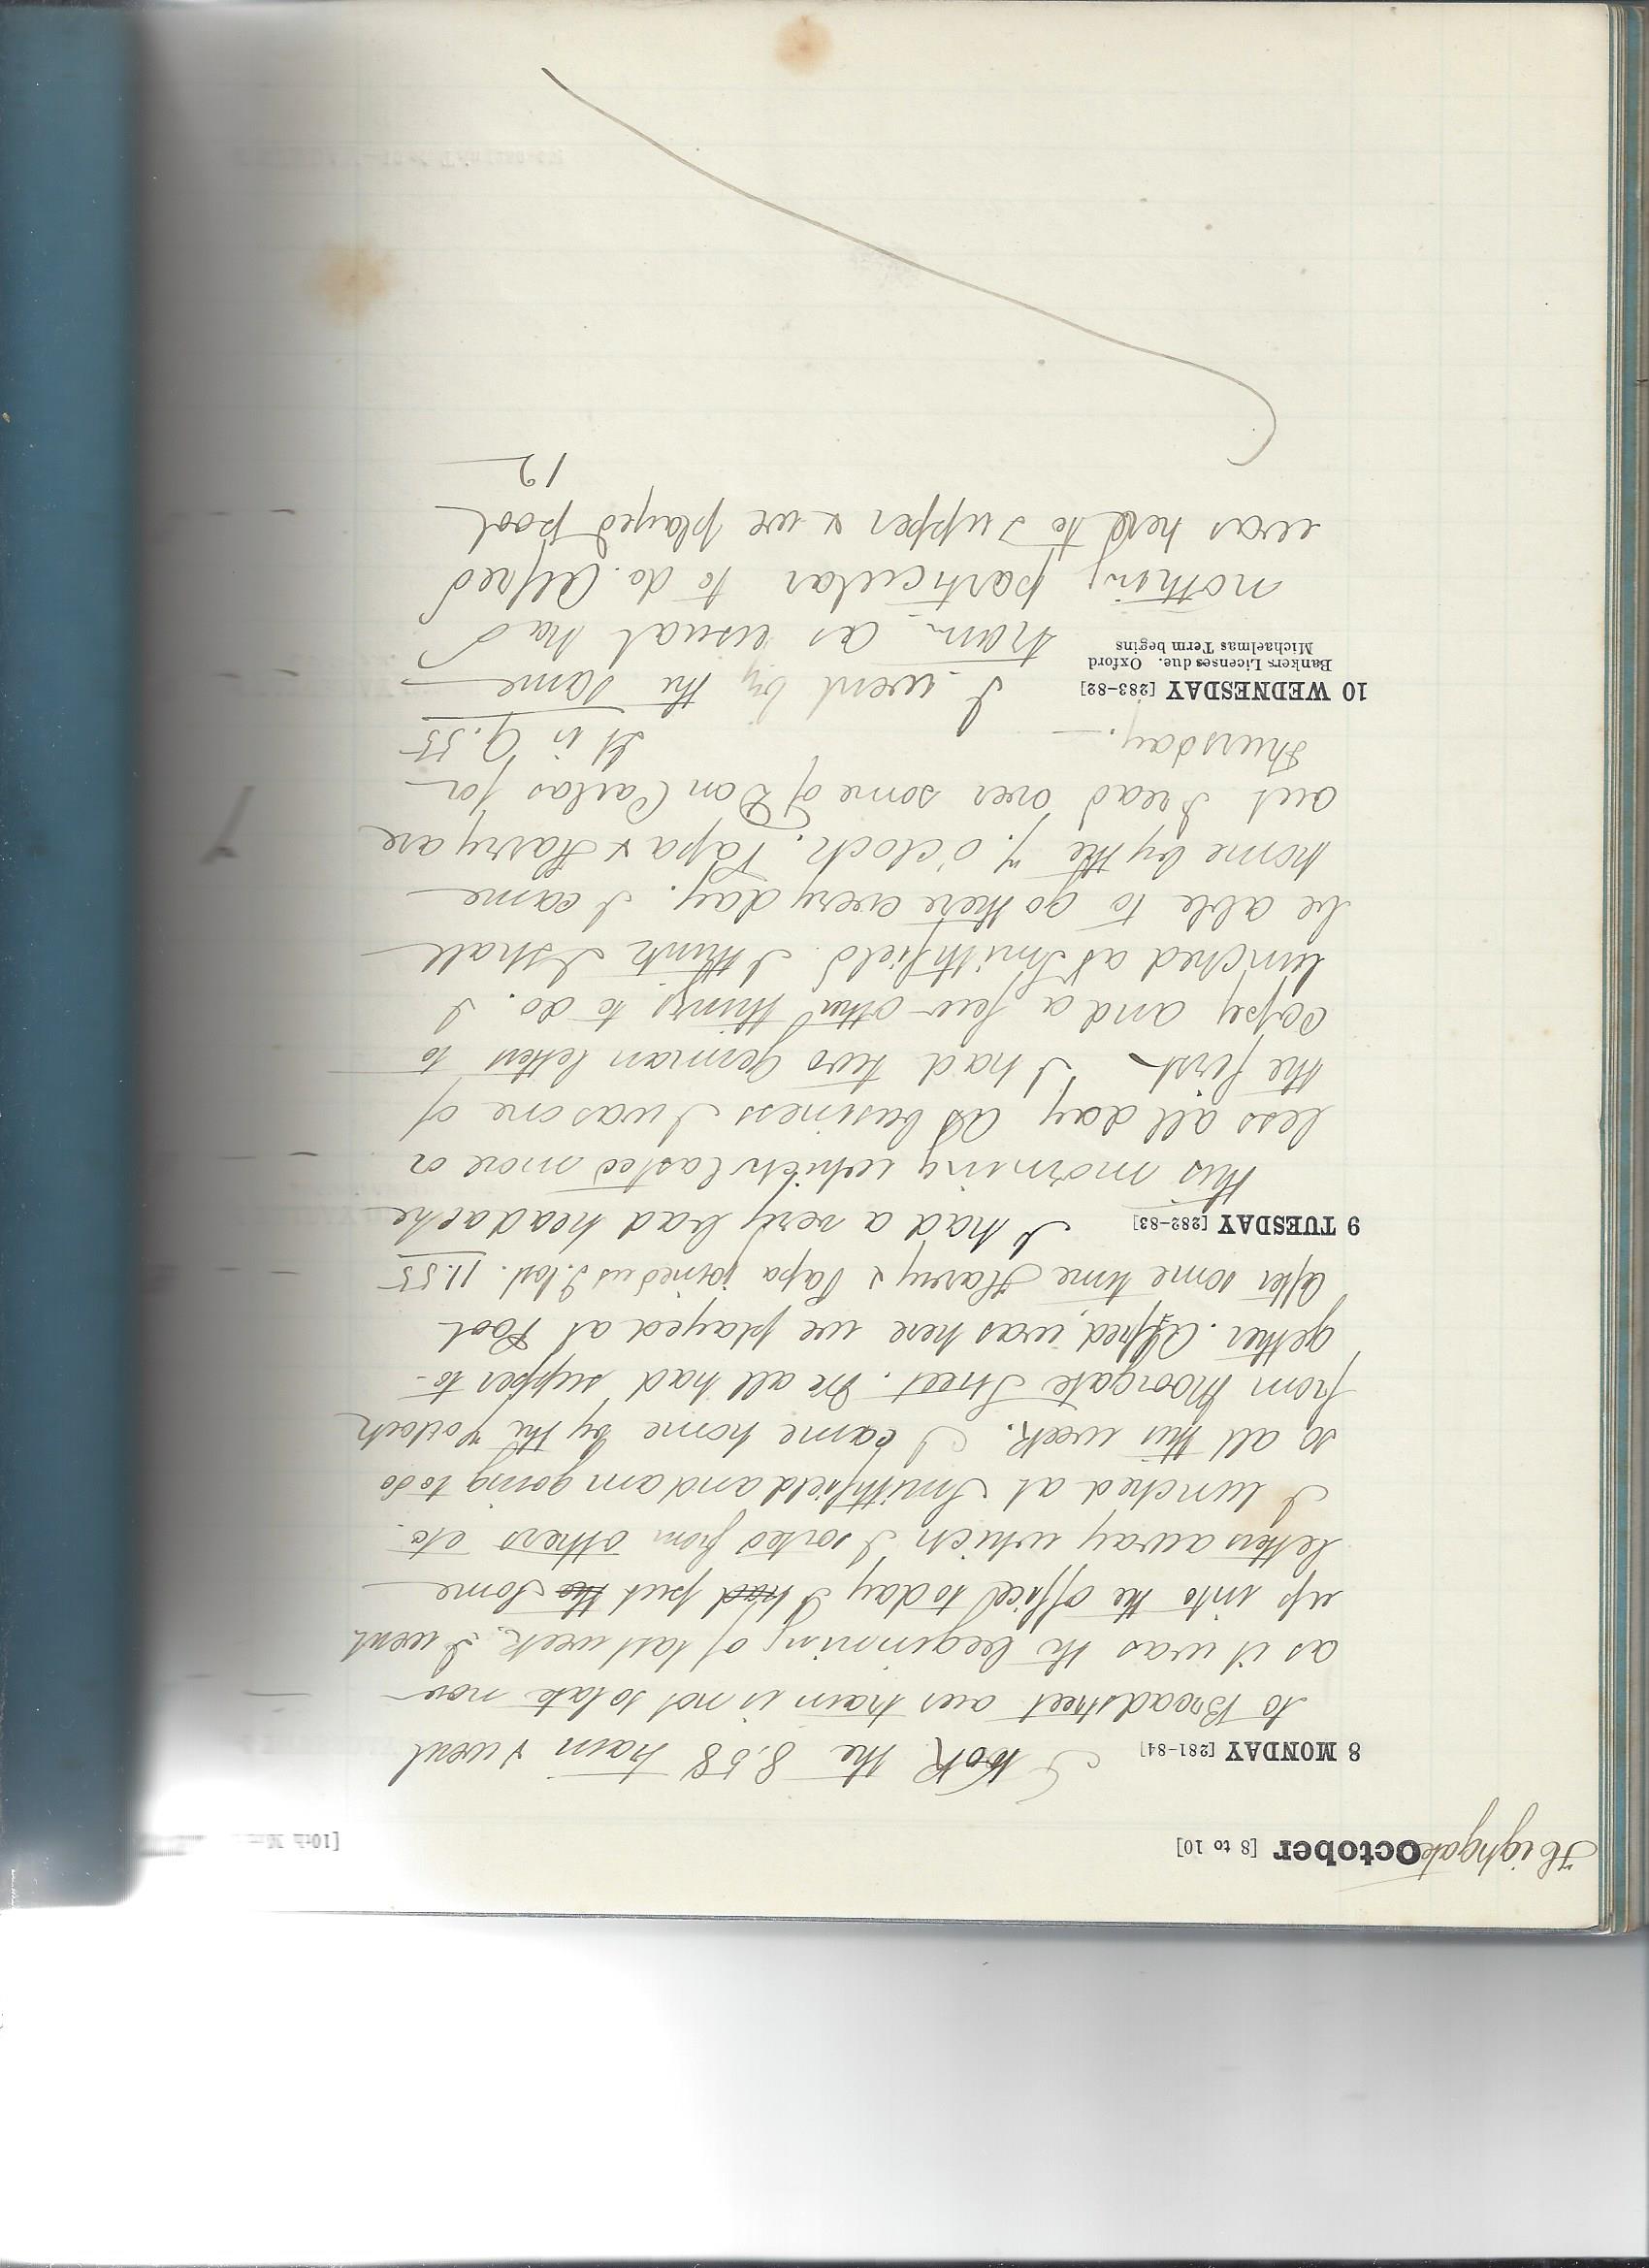 Highgate October [8 to 10] [10th M
8 MONDAY [281-84] I took the 8.58 train & went
to Broadstreet our train is not so late now
as it was the beginning of last week. I went
up into the office today I had put the some
letters away which I sorted from others etc.
I lunched at Smithfield and am going to do
so all this week. I came home by the 7 oclock
from Moorgate Street. We all had supper to-
gether. Alfred was here we played at Pool
after some time Harry & Papa joined us I lost. 11.55
9 TUESDAY [282-83] I had a very bad headache
this morning which lasted more or
less all day. At business I was one of
the first. I had two German letters to
copy and a few other things to do. I
lunched at Smithfield. I think I shall
be able to go there every day. I came
home by the 7. o'clock. Papa & Harry are
out I read over some of Don Carlos for
Thursday. — It is 9.55
10 WEDNESDAY [283-82] I went by the same
Bankers Licenses due. Oxford
Michaelmas Term begins
train as usual had
nothing particular to do. Alfred
was here to supper & we played pool
12